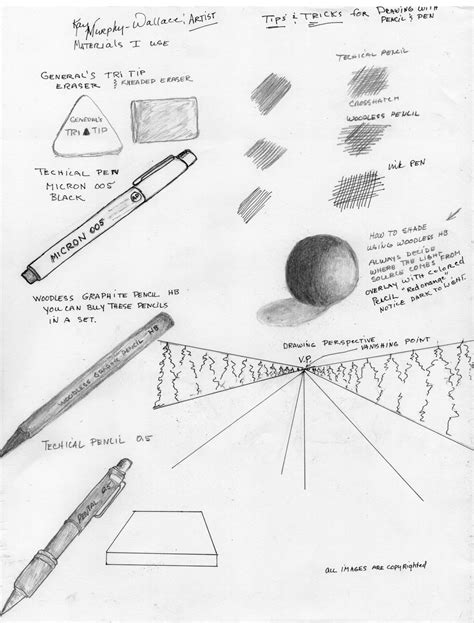 Kay Murphy-Wallace; Artist
Materials I use
Tips & Tricks for Drawing with
Pencil & Pen
General's Tri Tip
Eraser & Kneaded Eraser
General's
Tri ▲ Tip
Techical Pen
Micron 005
Black
MICRON 005
Techical Pencil
Crosshatch
Woodless Pencil
Ink Pen
How to shade
using woodless HB
Always decide
where the light
source comes from
overlay with colored
pencil - Redorange
notice dark to light.
Woodless Graphite Pencil HB
You can buy these pencils
in a set.
Drawing Perspective
Vanishing Point
V.P.
Techical Pencil 0.5
Pentel 0.5
All images are copyrighted